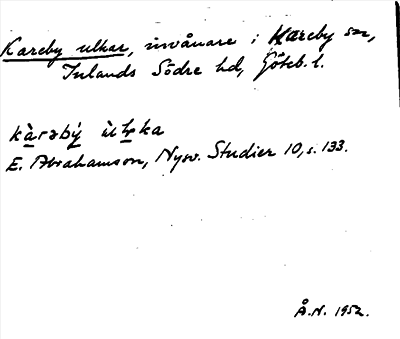 Kareby ulkar, invånare i Kareby sn,
Inlands Södre hd, Göteb. l.
kàrəbý ùlka
E. Abrahamson, Nysv. Studier 10, s. 133.
Å.N. 1952.